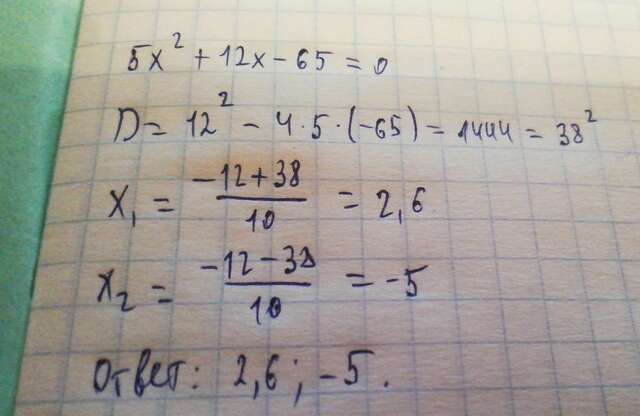 5x² + 12x - 65 = 0
D = 12² - 4 · 5 · (-65) = 1444 = 38²
x₁ = (-12 + 38)/10 = 2,6
x₂ = (-12 - 38)/10 = -5
Ответ: 2,6 ; -5.